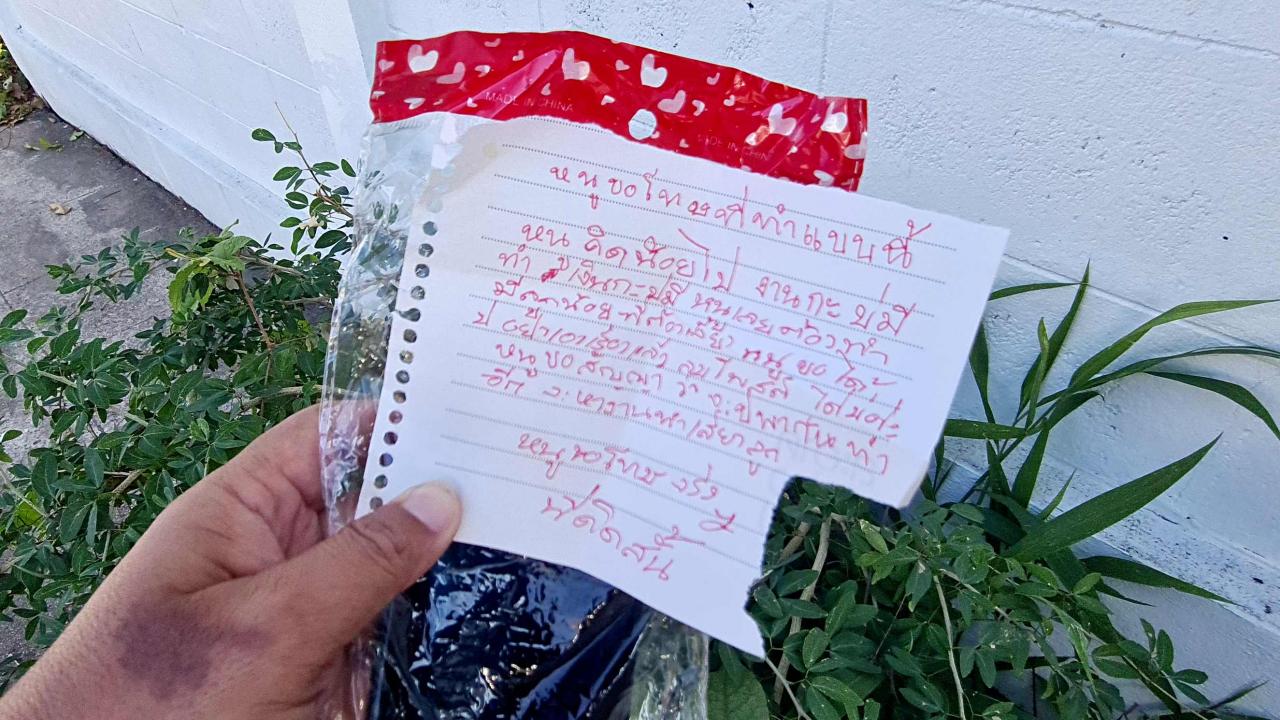 MADE IN CHINA
MADE IN CHIN
หนูขอโทษที่ทำแบบนี้
หนูคิดน้อยไป งานกะบ่มี
ทำ เงินกะบ่มี หนูเลยต้องทำ
มีลูกน้อยที่ต้องเลี้ยง หนูขอได้
ป่ อย่าเอาเรื่อง แล้ว ลบโพสสิ ได้บ่
หนูขอสัญญาว่า จะบ่พาซนทำ
อีก จะหางานทำเลี้ยงลูก
หนูขอโทษจริงๆ
ที่คิดสั้น